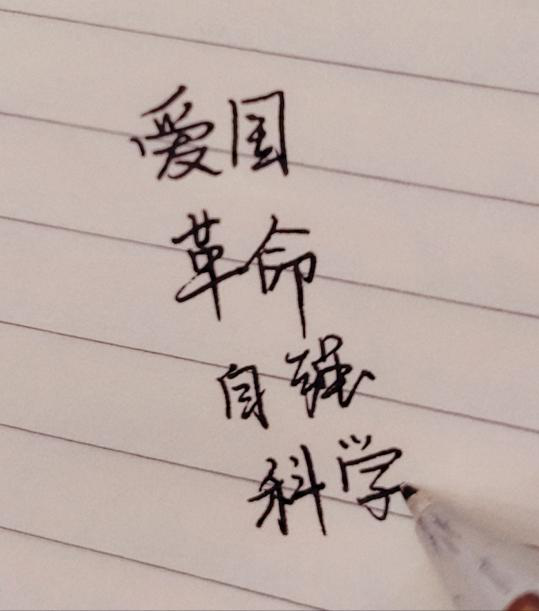 爱国
革命
自强
科学